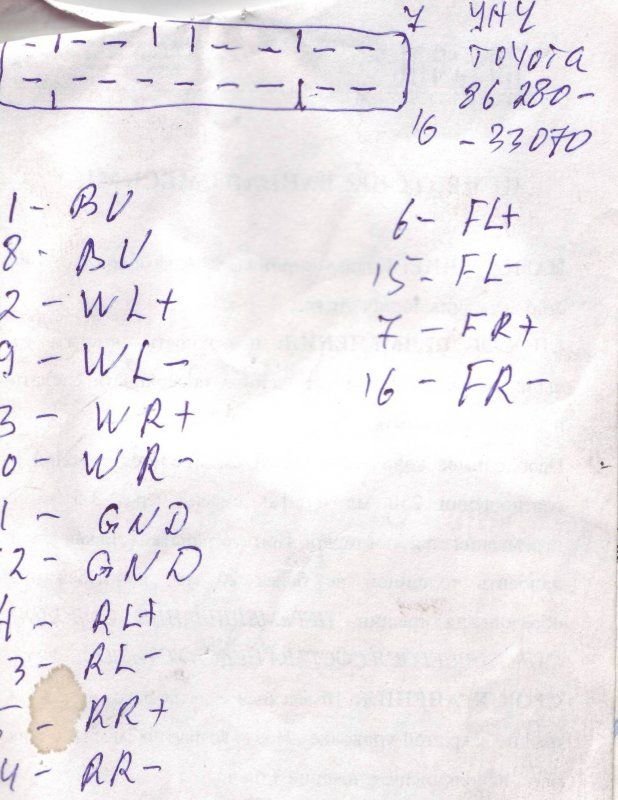 7 УНЧ
TOYOTA
86280-
16 -33070
1 - BU
8 - BU
2 - WL+
9 - WL-
3 - WR+
0 - WR-
1 - GND
2 - GND
4 - RL+
3 - RL-
- RR+
4 - RR-
6 - FL+
15 - FL-
7 - FR+
16 - FR-